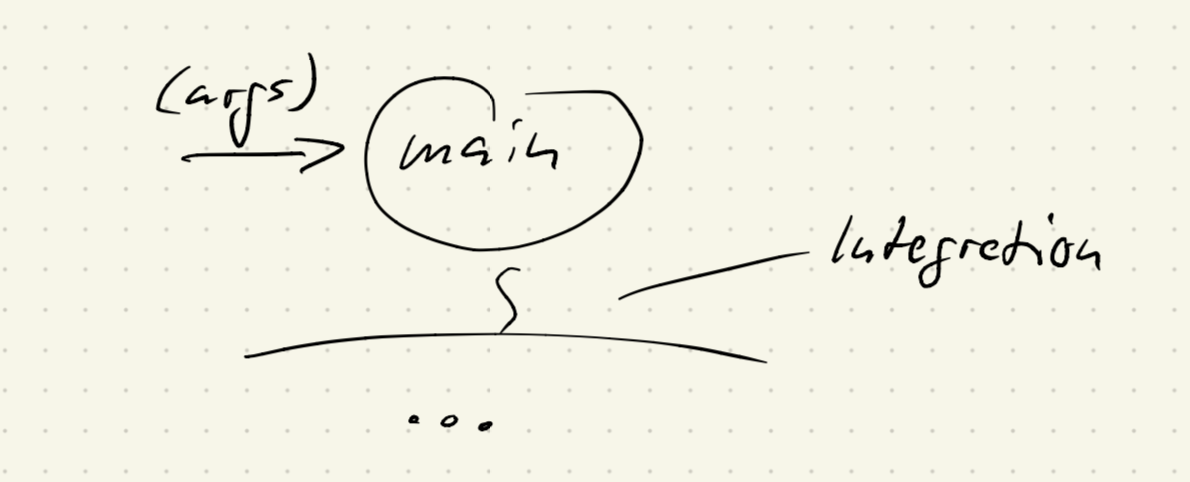 (args)
main
Integration
...